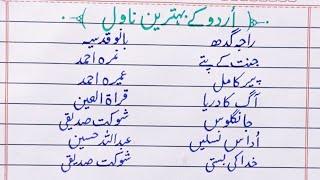 اُردو کے بہترین ناول
راجہ گدھ بانو قدسیہ
جنت کے پتے نمرہ احمد
پیر کامل عمیرہ احمد
آگ کا دریا قراۃ العین
جانگلوس شوکت صدیقی
اُداس نسلیں عبداللہ حسین
خدا کی بستی شوکت صدیقی